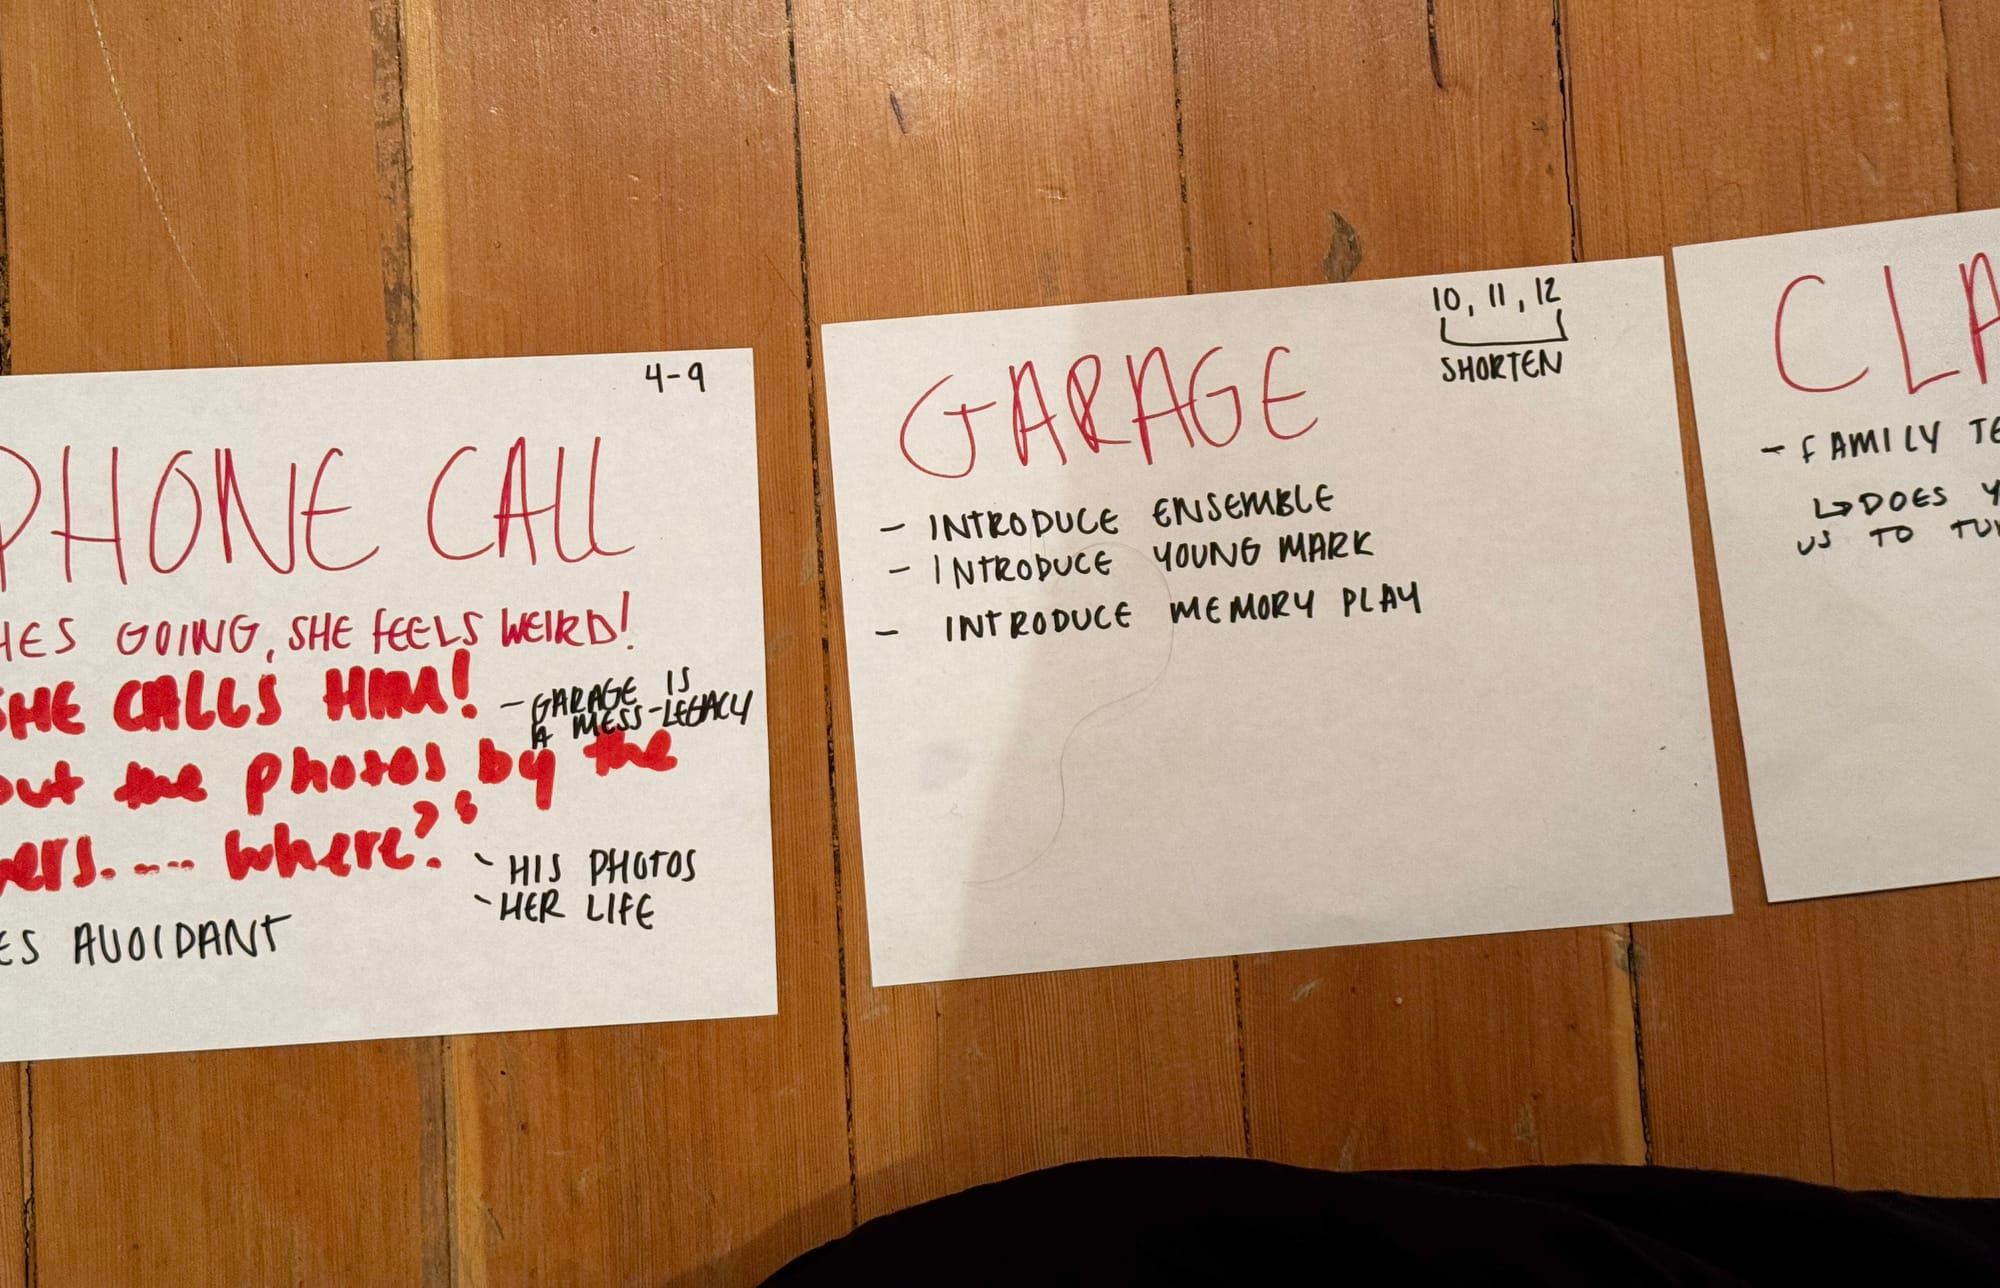 4-9
PHONE CALL
HES GOING, SHE FEELS WEIRD!
SHE CALLS HIM!
- GARAGE IS
A MESS - LEGACY
out the photos by the
where?"
- HIS PHOTOS
- HER LIFE
AVOIDANT
10, 11, 12
SHORTEN
GARAGE
- INTRODUCE ENSEMBLE
- INTRODUCE YOUNG MARK
- INTRODUCE MEMORY PLAY
CLA
- FAMILY TE
↳ DOES Y
US TO TU